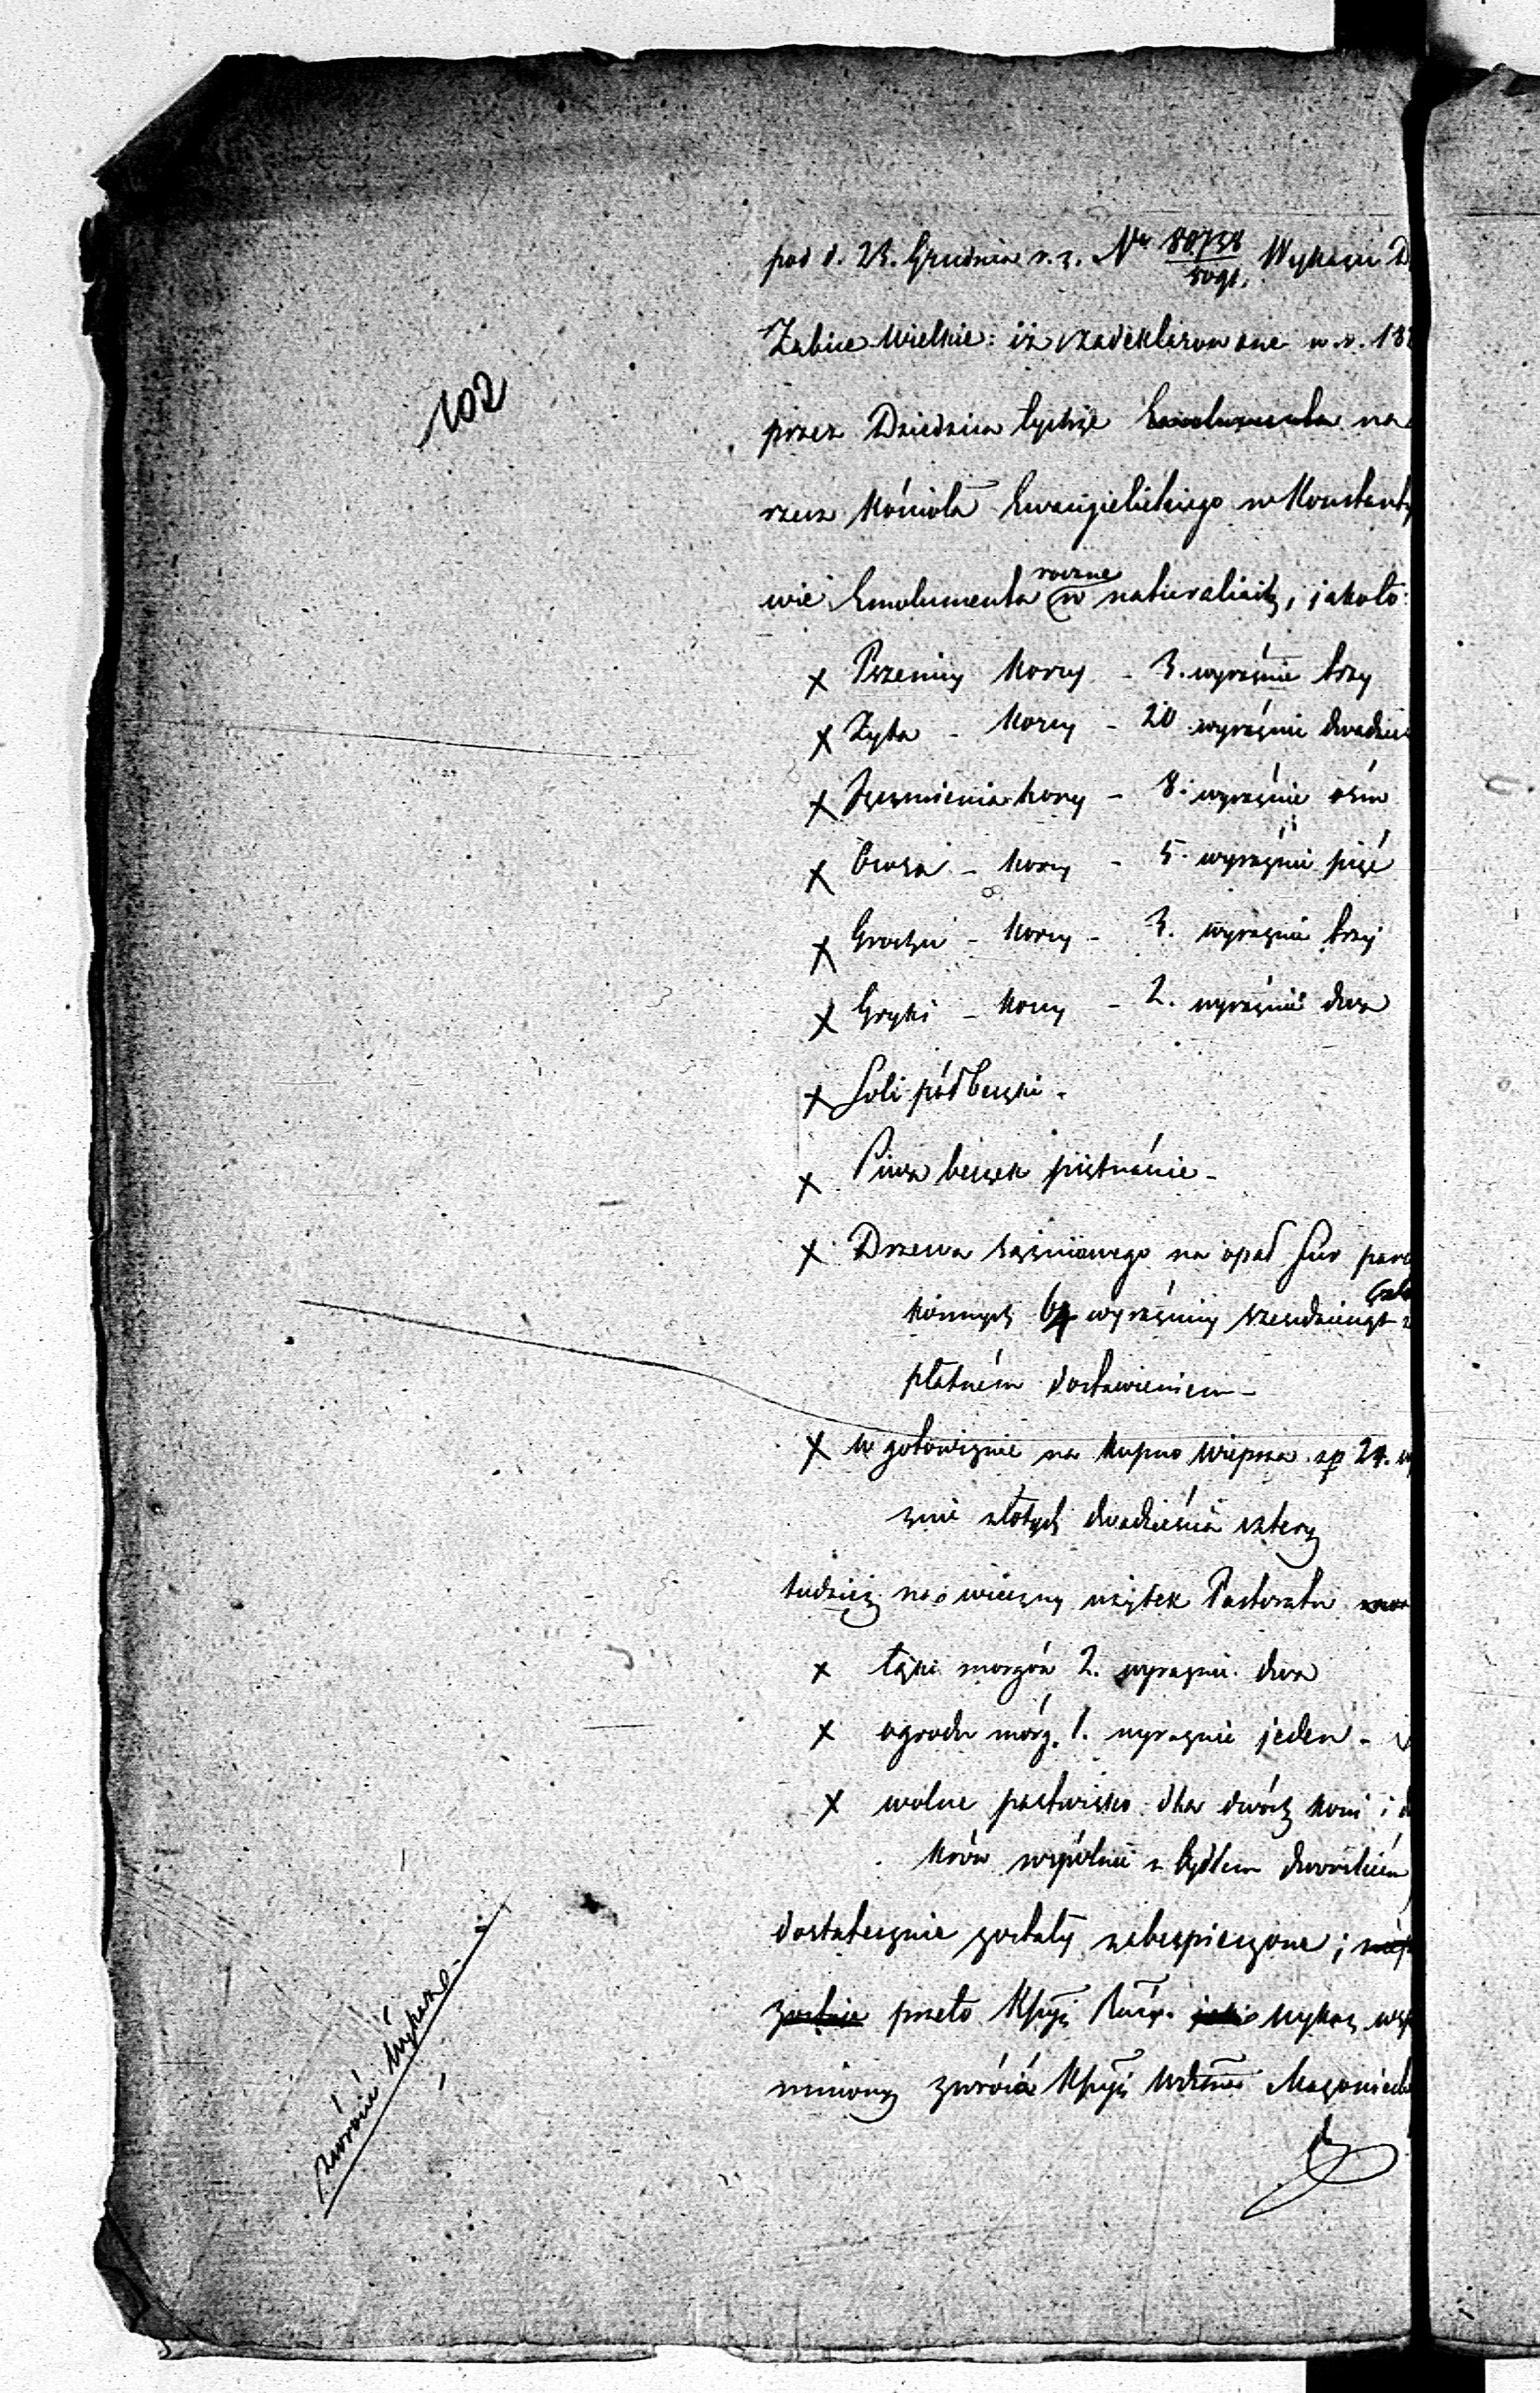 102
pod d. 23. Grudnia r. z. Nr 80738/5091. Wykazu D
Żabice Wielkie: iż zadeklarowane w r. 18
przez Dziedzica tychże Emolumenta na
rzecz Kościoła Ewangielickiego w Konstanty
wie Emolumenta roczne w naturaliach, jakoto:
x Pszenicy korcy - 3. wyraźnie trzy
x Żyta - korcy - 20 wyraźnie dwadzieś
x Jęczmienia korcy - 8. wyraźnie ośm
x Owsa - korcy - 5. wyraźnie pięć
x Grochu - korcy - 3. wyraźnie trzy
x Gryki - korcy - 2. wyraźnie dwa
x Soli pół beczki -
x Piwa beczek piętnaście -
x Drzewa sążniowego na opał fur paro
konnych 64 wyraźniey sześćdziesiąt
płatném dostawieniem -
x w gotowiznie na kupno wieprza zp 24. w
źnie złotych dwadzieścia cztery
tudzież na wieczny użytek Pastoratu
x łąki morgów 2. wyraźnie dwa
x ogrodu mórg. 1. wyraźnie jeden -
x wolne pastwisko dla dwóch koni i d
krów wspólnie z bydłem dworskiém
dostatecznie zostały zabezpieczone;
przeto wykaz wsp
mniony zwróci
zwrócić Wykaz